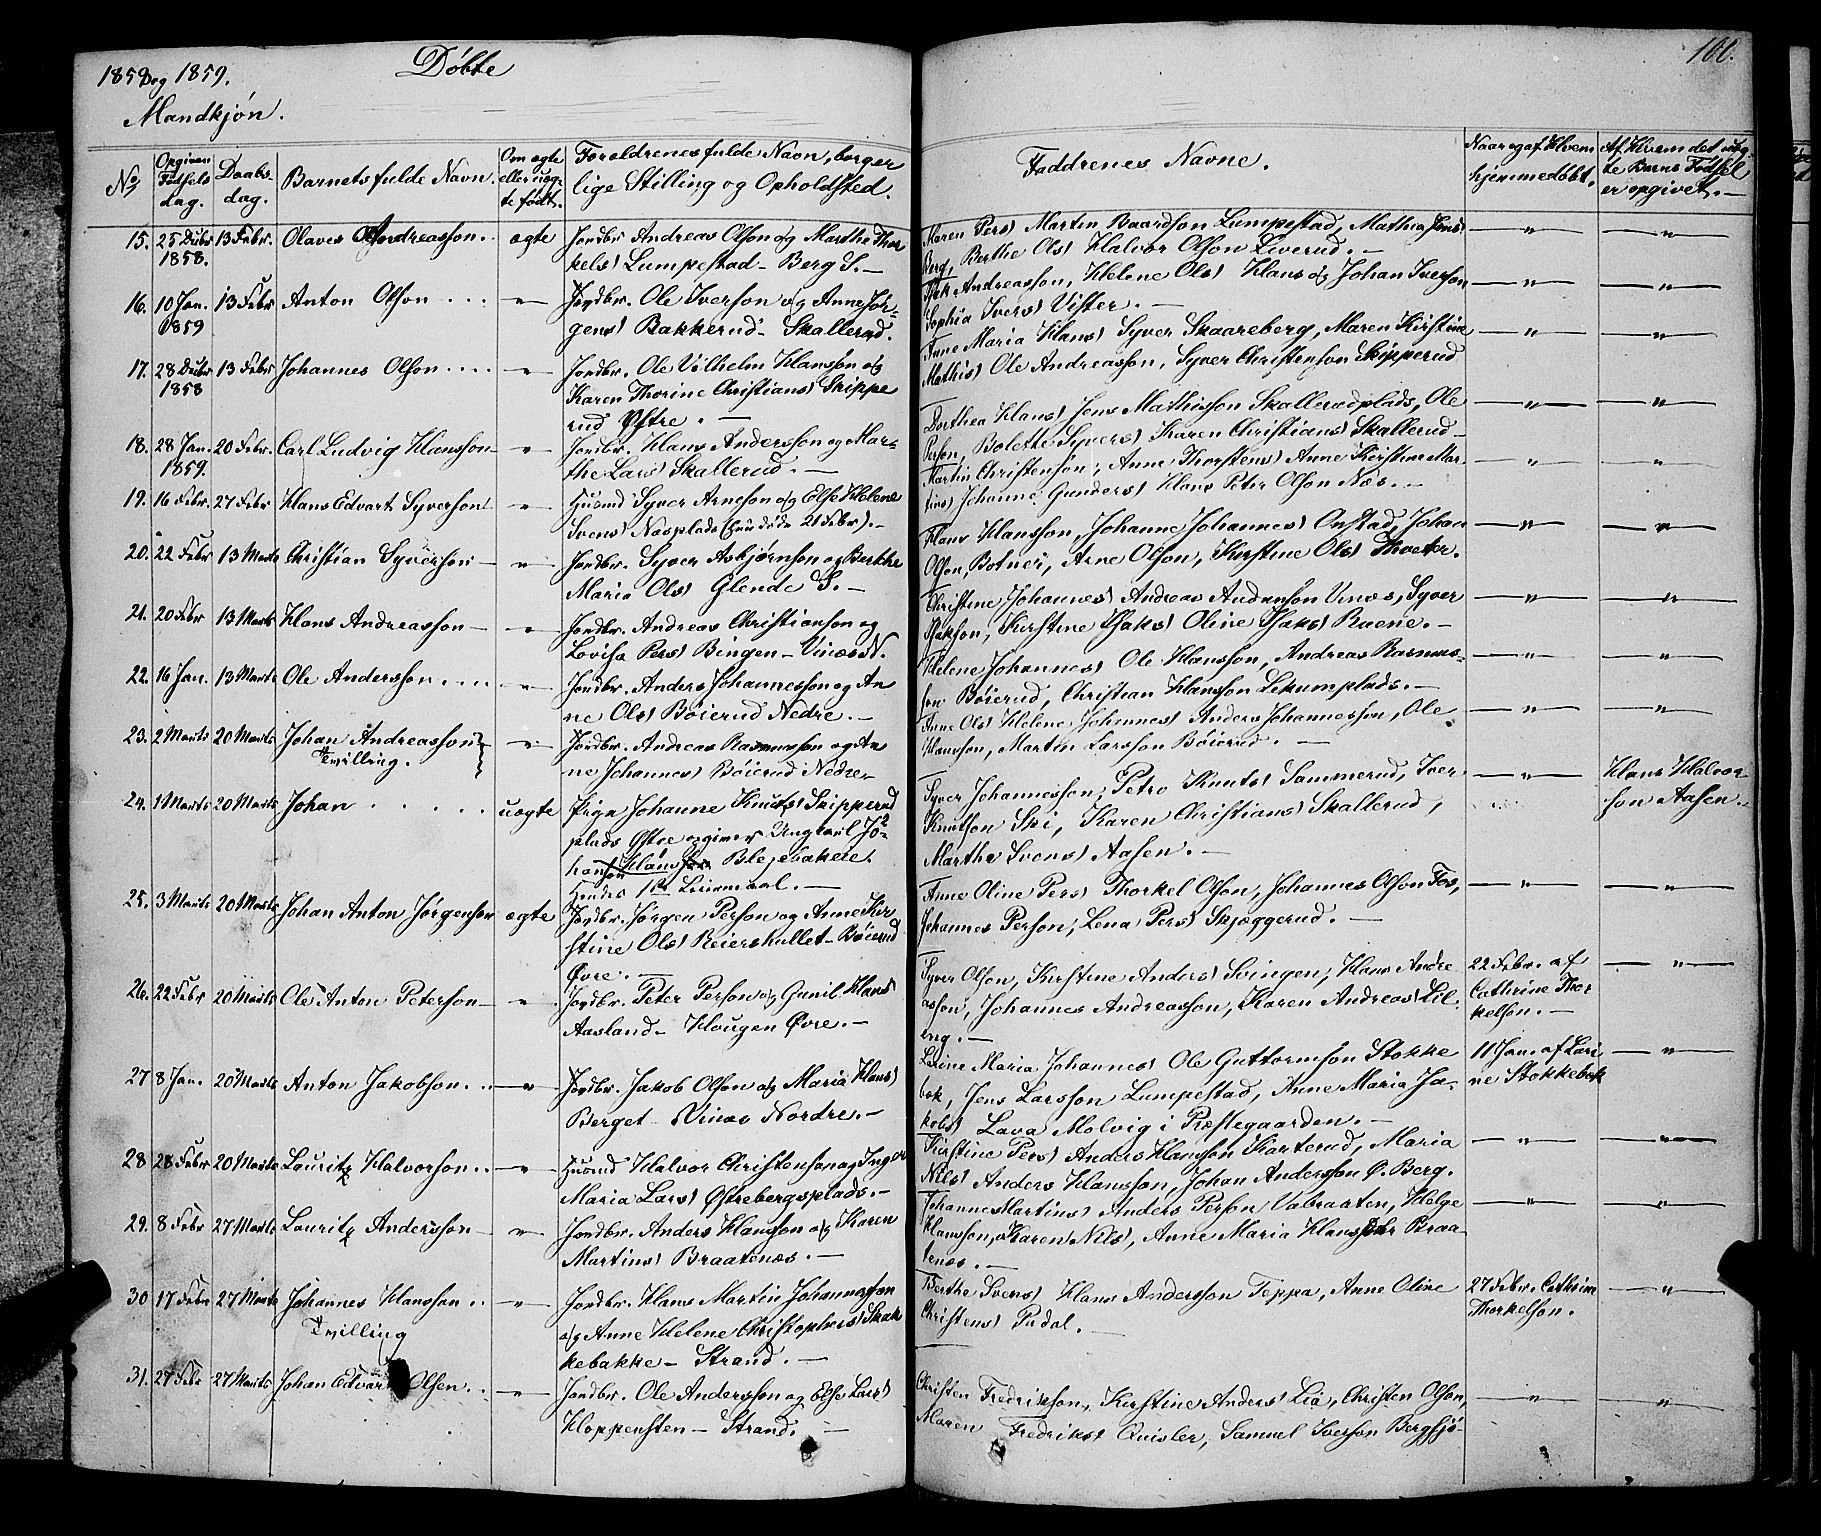 1858 og 1859.
Døbte
100.
Mandkjøn.
No
Opgiven Fødsels dag.
Daabs- dag.
Barnets fulde Navn.
Om ægte eller uæg- te født.
Forældrenes fulde Navn, borger lige Stilling og Opholdsted.
Faddrenes Navne.
Naar og af Hvem hjemmedøbt.
Af Hvem det uæg- te Barns Fødsel er opgivet.
15. 25 Dcbr 13 Febr. Olaves Andreasson .. ægte Jordbr Andreas Olson og Marthe Thor
1858. kelsd Lumpestad - Berg S. -
Maren Persd Martin Baardson Lumpestad, Mathea Jensd
Berg, Berthe Olsd Halvor Olson Liverud. -
16. 10 Jan. 13 Febr Anton Olson .... Jordbr. Ole Iverson og Anne Jør-
1859 gensd Bakkerud - Skallerud.
Isak Andreasson, Helene Olsd Hans og Johan Iverson
Sophia Iversd Vister. -
17. 28 Dcbr 13 Febr Johannes Olson .... Jordbr. Ole Vilhelm Hansson og
1858 Karen Thorine Christiansd Skippe
rud Østre. -
Anne Maria Hansd Syver Skaareberg, Maren Kirstine
Mathisd Ole Andreasson, Syver Christenson Skipperud
18. 28 Jan. 20 Febr. Carl Ludvig Hansson Jordbr. Hans Andersson og Mar-
1859. the Larsd Skallerud. -
Dorthea Hansd Jens Mathisson Skallerudplads, Ole
Person, Bolette Syversd Karen Christiansd Skallerud -
19. 16 Febr. 27 Febr Hans Edvart Syverson Husmd Syver Arneson og Else Helene
Svensd Næsplads ( døde 21 Febr). -
Martin Christenson, Anne Thorstensd Anne Kirstine Mar-
tinsd Johanne Gundersd Hans Peter Olson Næs. -
20. 22 Febr 13 Marts Christian Syverson - Jordbr. Syver Asbjørnson og Berthe
Maria Olsd Glende S. -
Hans Hansson, Johanne Johannesd Onstad, Johan
Olson, Botner, Arne Olson, Kirstine Olsd Thveter.
21. 20 Febr 13 Marts Hans Andreasson - Jordbr. Andreas Christianson og
Lovisa Persd Bingen - Vinæs N.
Christine Johannesd Andreas Anderson Vinæs, Syver
Isakson, Kirstine Isaksd Oline Isaksd Ruene. -
22. 16 Jan. 13 Marts Ole Andersson .... Jordbr. Anders Johannesson og An
ne Olsd Bøierud Nedre. -
Helene Johannesd Ole Hansson, Andreas Rasmus-
son Bøierud, Christian Hansson Lekumplads. -
23. 2 Marts 20 Marts Johan Andreasson Jordbr. Andreas Rasmusson og An
Tvilling. ne Johannesd Bøierud Nedre -
Anne Olsd Helene Johannesd Anders Johannesson, Ole
Hansson, Martin Larsson Bøierud. -
24. 1 Marts 20 Marts Johan .... uægte Pige Johanne Knutsd Skipperud
plads Østre opgiver Ungkarl Jo-
han Hansson Blejebakke.
Hendes 1ste Leiermaal. -
Syver Johannesson, Petro Knutsd Sammerud, Iver
Knutson Ski, Karen Christiansd Skallerud,
Marthe Svensd Aasen. -
Hans Halvor-
son Aasen.
25. 3 Marts 20 Marts Johan Anton Jørgenson ægte Jordbr. Jørgen Person og Anne Kir
stine Olsd Reiershullet - Bøierud
Øvre. -
Anne Oline Persd Thorkel Olson, Johannes Olson Fos,
Johannes Person, Lena Persd Skjæggerud. -
26. 22 Febr 20 Marts Ole Anton Peterson - Jordbr. Peter Person og Gunil Hansd
Aasland - Hougen Øvre. -
Syver Olson, Kirstine Andersd Svingen, Hans Andre
asson, Johannes Andreasson, Karen Andreasd Lil-
eng. -
22 Febr. af
Cathrine Thor
kelson. -
27 8 Jan. 20 Marts Anton Jakobson .. Jordbr. Jakob Olson og Maria Hansd
Berget - Vinæs Nordre. -
Larine Maria Johannesd Ole Guttormson Stokke
bæk, Jens Larsson Lumpestad, Anne Maria Ja-
kobsd Lava Molvig i Præstegaarden. -
11 Jan. af Lari
ne Stokkebæk
28 28 Febr 20 Marts Lauritz Halvorson .. Husmd Halvor Christenson og Inger
Maria Larsd Østrebergsplads. -
Kirstine Persd Anders Hansson Karterud, Maria
Nilsd Anders Hansson, Johan Andersson Ø. Berg.
29. 8 Febr 27 Marts Lauritz Andersson - Jordbr. Anders Hansson og Karen
Martinsd Braatenæs. -
Johannes Martinsd Anders Person Valbraaten, Helge
Hansson, Karen Nilsd, Anne Maria Hansd Braa-
tenæs. -
30 17 Febr 27 Marts Johannes Hansson .. Jordbr. Hans Martin Johannesson
Tvilling og Anne Helene Christophersd Skak
kebakke - Strand. -
Berthe Svensd Hans Andersson Teppa, Anne Oline
Christensd Pudal. -
27 Febr. Cathrine
Thorkelson.
31. 27 Febr 27 Marts Johan Edvar Olsen .. Jordbr. Ole Andersson og Else Larsd
Kloppensten - Strand. -
Christen Fredrikson, Kirstine Andersd Lia, Christen Olson,
Maren Fredriksd Quisler, Samuel Iverson Bergsjø-